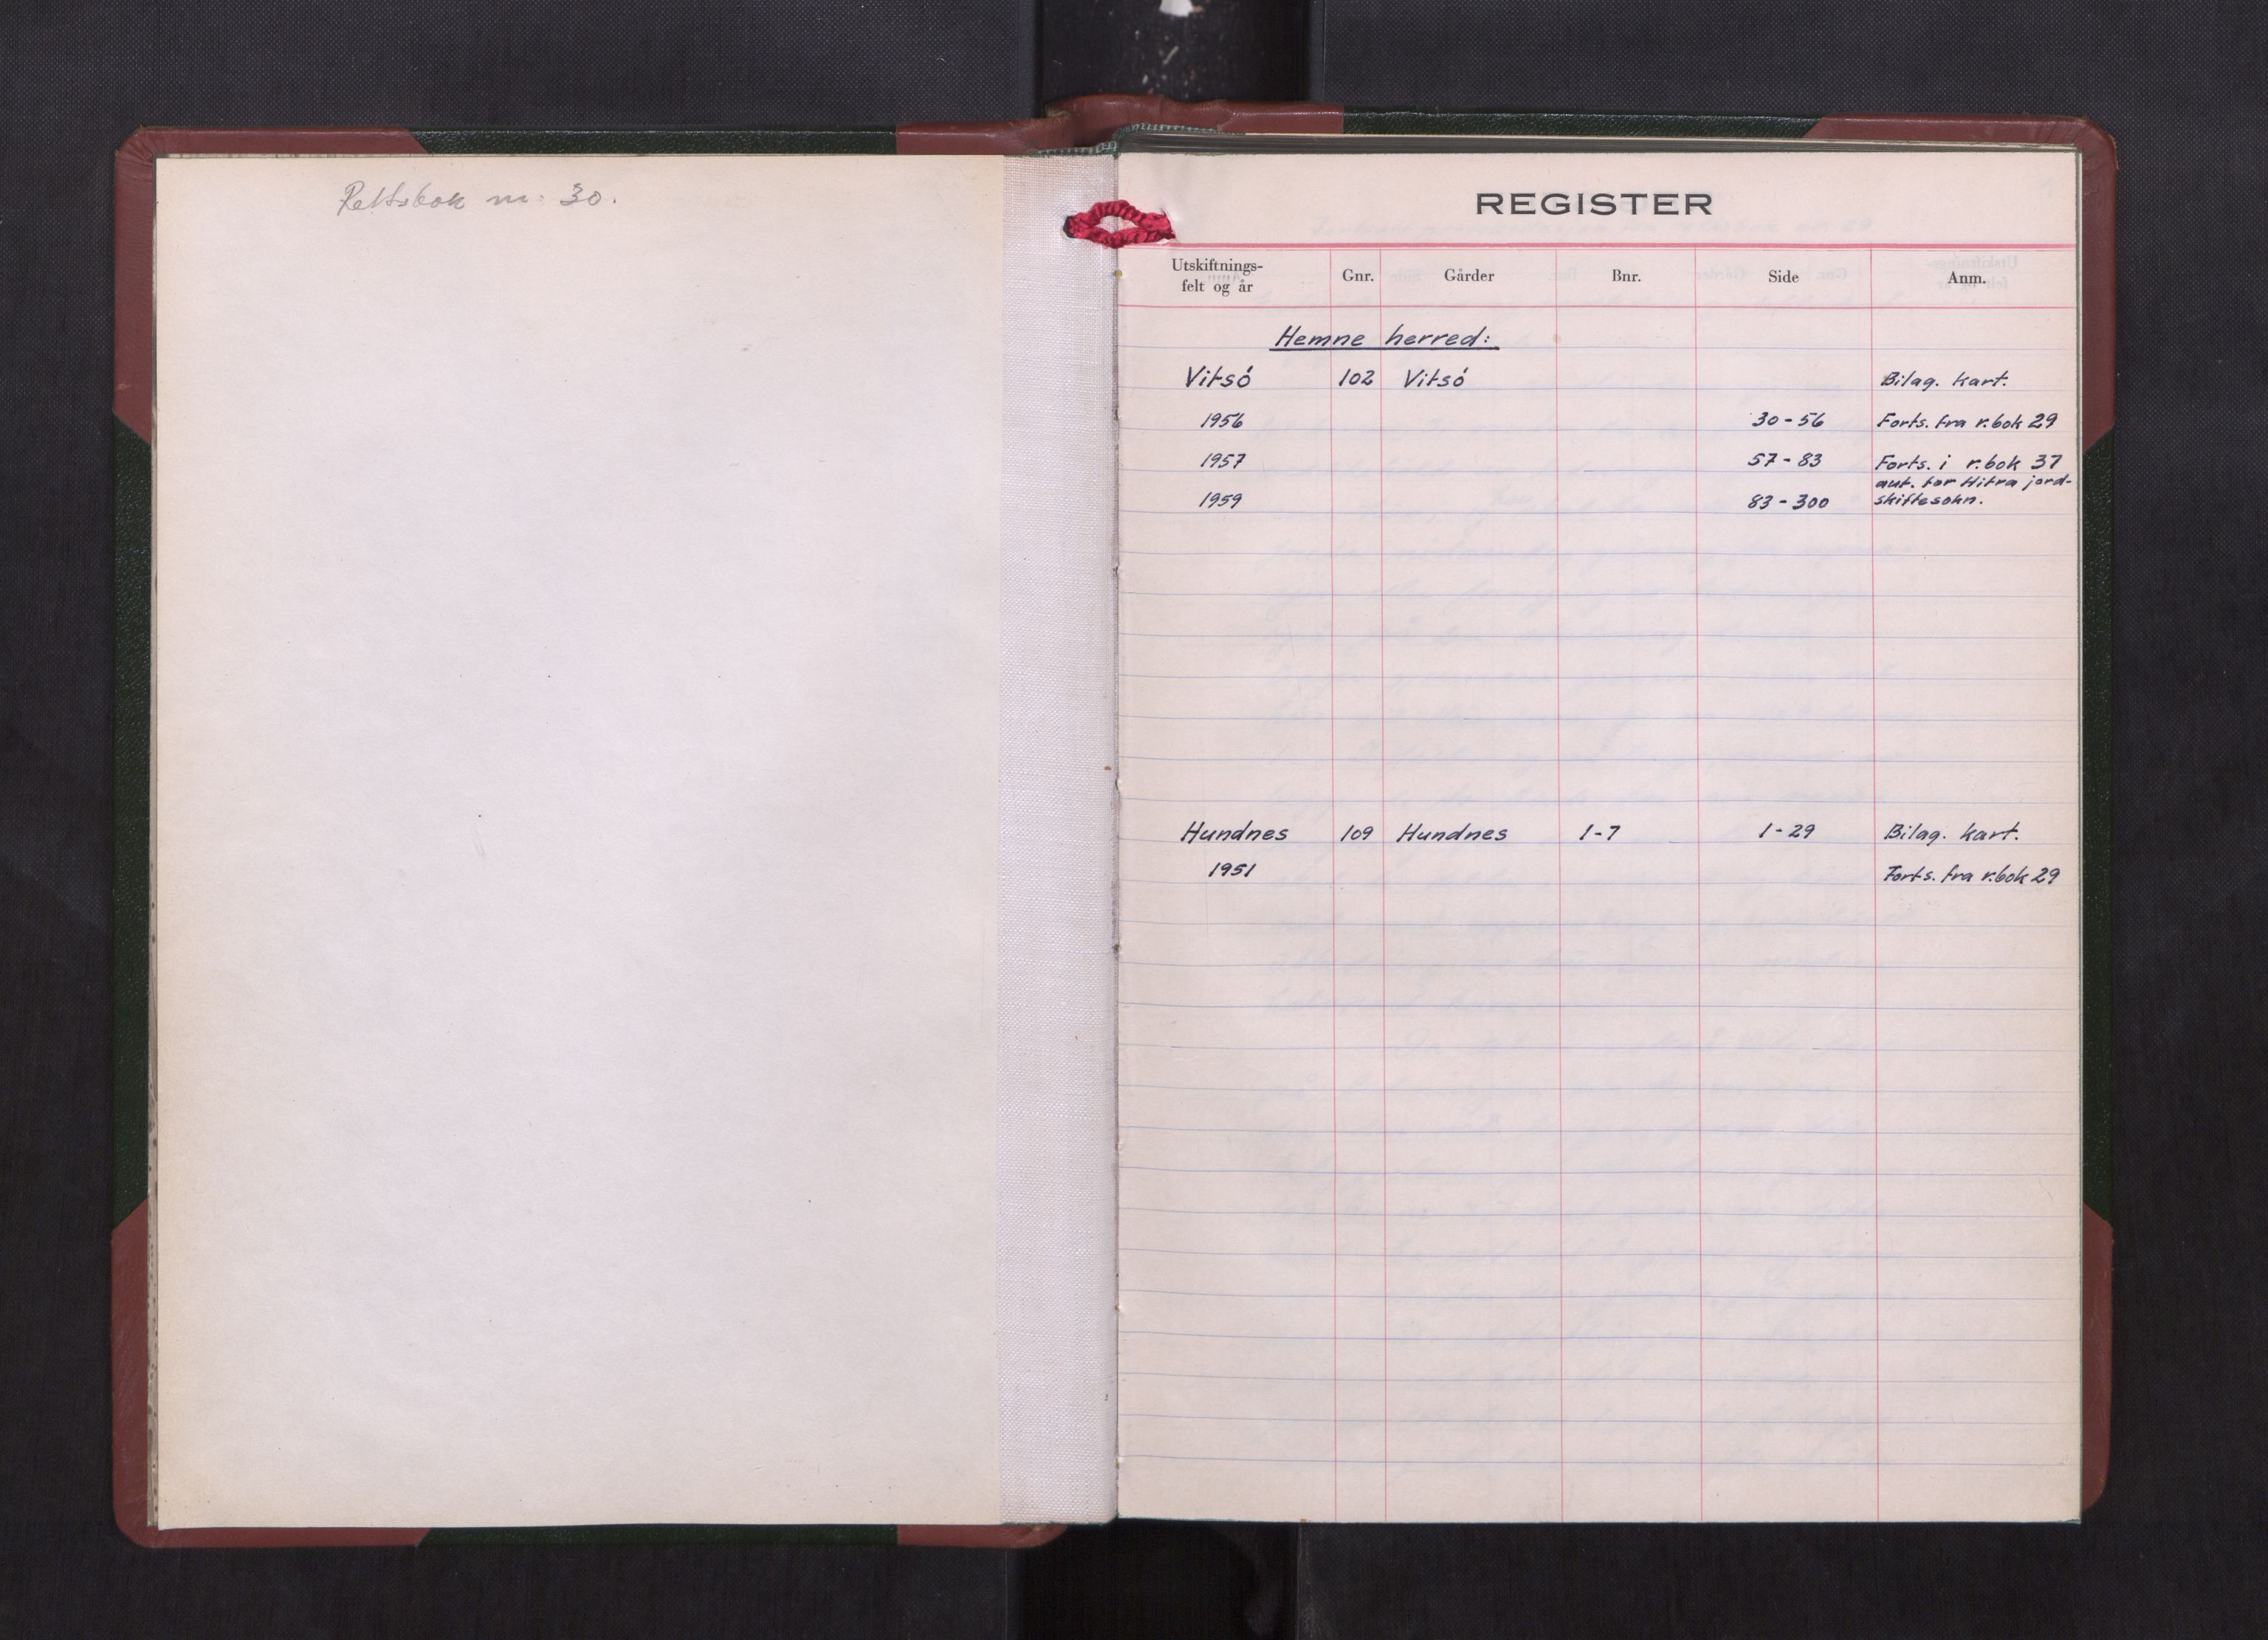 Rettsbok nr. 30.
REGISTER
Utskiftnings-
felt og år Gnr. Gårder Bnr. Side Anm.
Hemne herred:
Vitsó 102 Vitsó Bilag. Kart.
1956 30-56 Forts. fra r.bok 29
1957 57-83 Forts. i r.bok 37
aut. for Hitra jord-
1959 83-300 skiftesokn.
Hundnes 109 Hundnes 1-7 1-29 Bilag. Kart.
1951 Forts. fra r.bok 29